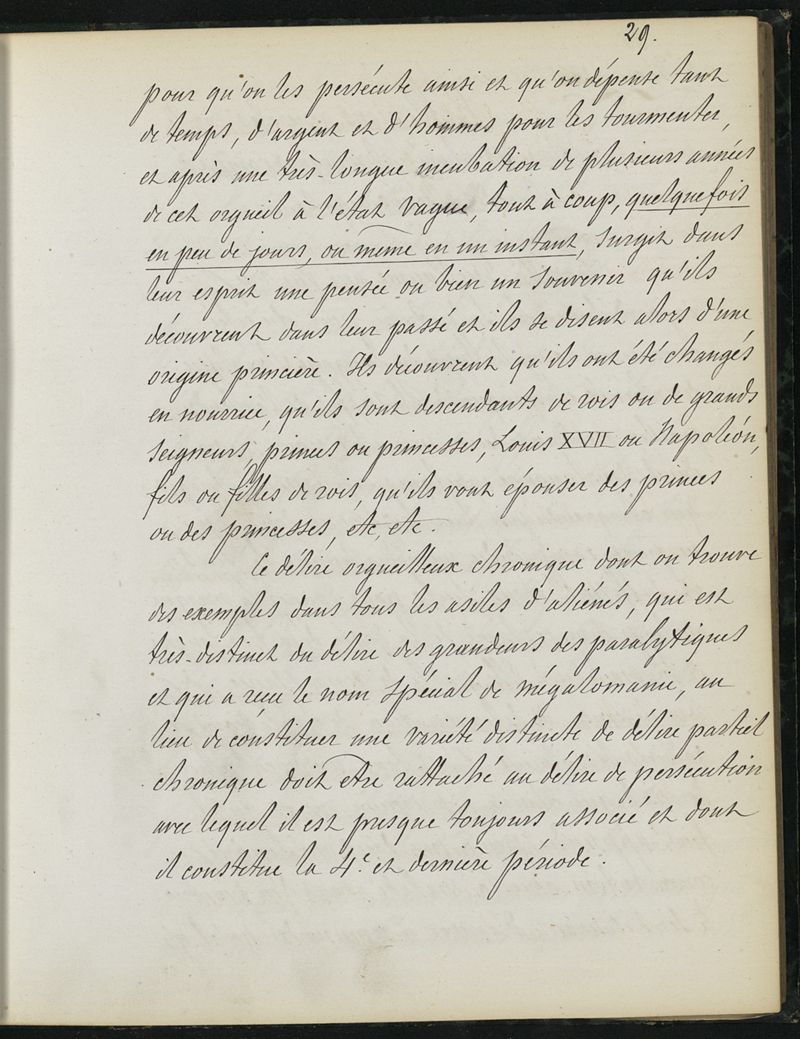 29.
pour qu'on les persécute ainsi et qu'on dépense tant
de temps, d'argent et d'hommes pour les tourmenter,
et après une très-longue incubation de plusieurs années
de cet orgueil à l'état vague, tout à coup, quelquefois
en peu de jours, ou même en un instant, surgit dans
leur esprit une pensée ou bien un souvenir qu'ils
découvrent dans leur passé et ils se disent alors d'une
origine princière. Ils découvrent qu'ils ont été changés
en nourrice, qu'ils sont descendants de rois ou de grands
seigneurs, princes ou princesses, Louis XVII ou Napoléon,
fils ou filles de rois, qu'ils vont épouser des princes
ou des princesses, etc, etc.
Ce délire orgueilleux chronique dont on trouve
des exemples dans tous les asiles d'aliénés, qui est
très-distinct du délire des grandeurs des paralytiques
et qui a reçu le nom spécial de mégalomanie, au
lieu de constituer une variété distincte de délire partiel
chronique doit etre rattaché au délire de persécution
avec lequel il est presque toujours associé et dont
il constitue la 4e et dernière période.